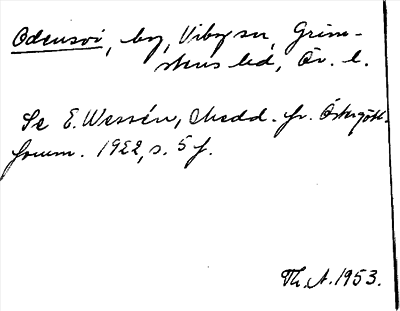 Odensvi, by, Viby sn, Grim-
stens hd, Ör. l.
Se E. Wessén, Medd. fr. Östergötl.
fornm. 1922, s. 5 f.
Th. A. 1953.